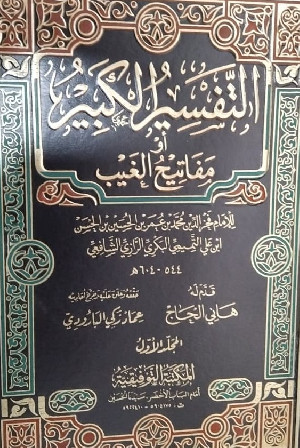 التفسير الكبير
أو
مفاتيح الغيب
للإمام فخر الدين محمد بن عمر بن الحسين بن الحسن
ابن علي التميمي البكري الرازي الشافعي
٥٤٤ - ٦٠٤ هـ
قدم له
هاني الحاج
حققه وعلق عليه وخرج أحاديثه
عماد زكي البارودي
المجلد الأول
المكتبة التوفيقية
أمام الباب الأخضر - سيدنا الحسين